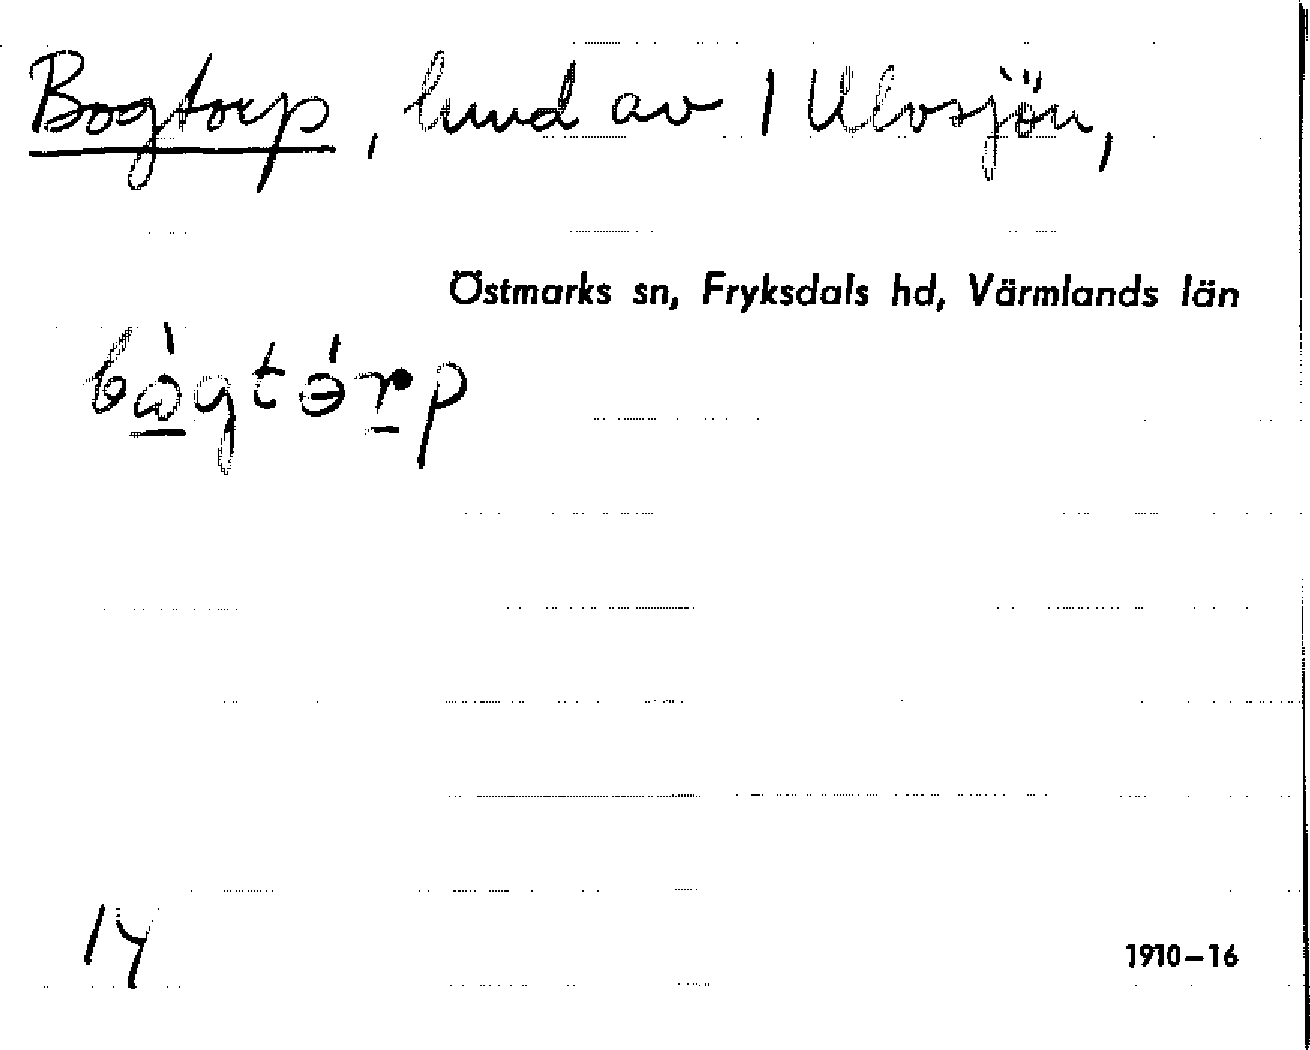 Bogtorp, lund av 1 Ulvsjön,
Östmarks sn, Fryksdals hd, Värmlands län
bògtɵ́rp
14
1910–16